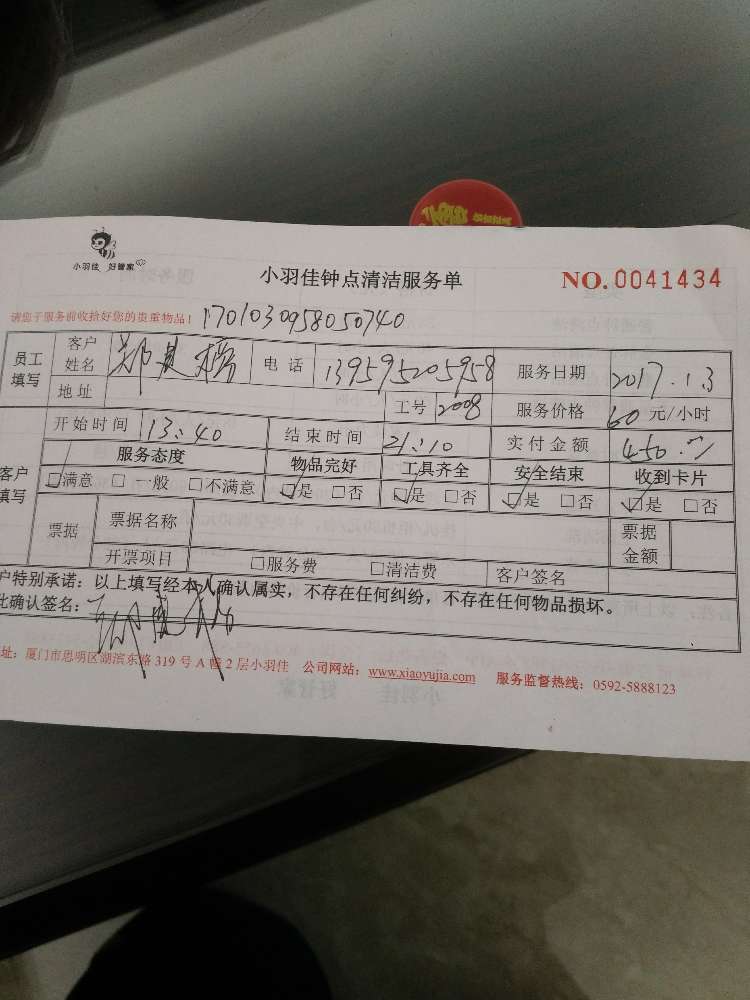 小羽佳 好管家
小羽佳钟点清洁服务单
NO.0041434
请您于服务前收拾好您的贵重物品！ 170103095805074​0
员工填写 客户姓名 郑 电话 13959205958 服务日期 2017.1.3
地址 工号 2008 服务价格 60 元/小时
客户填写 开始时间 13:40 结束时间 21:10 实付金额 450.
服务态度 物品完好 工具齐全 安全结束 收到卡片
☑满意 □一般 □不满意 ☑是 □否 ☑是 □否 ☑是 □否 ☑是 □否
票据 票据名称 票据金额
开票项目 □服务费 □清洁费 客户签名
户特别承诺：以上填写经本人确认属实，不存在任何纠纷，不存在任何物品损坏。
此确认签名：
址：厦门市思明区湖滨东路 319 号 A 幢 2 层小羽佳 公司网站：www.xiaoyujia.com 服务监督热线：0592-5888123